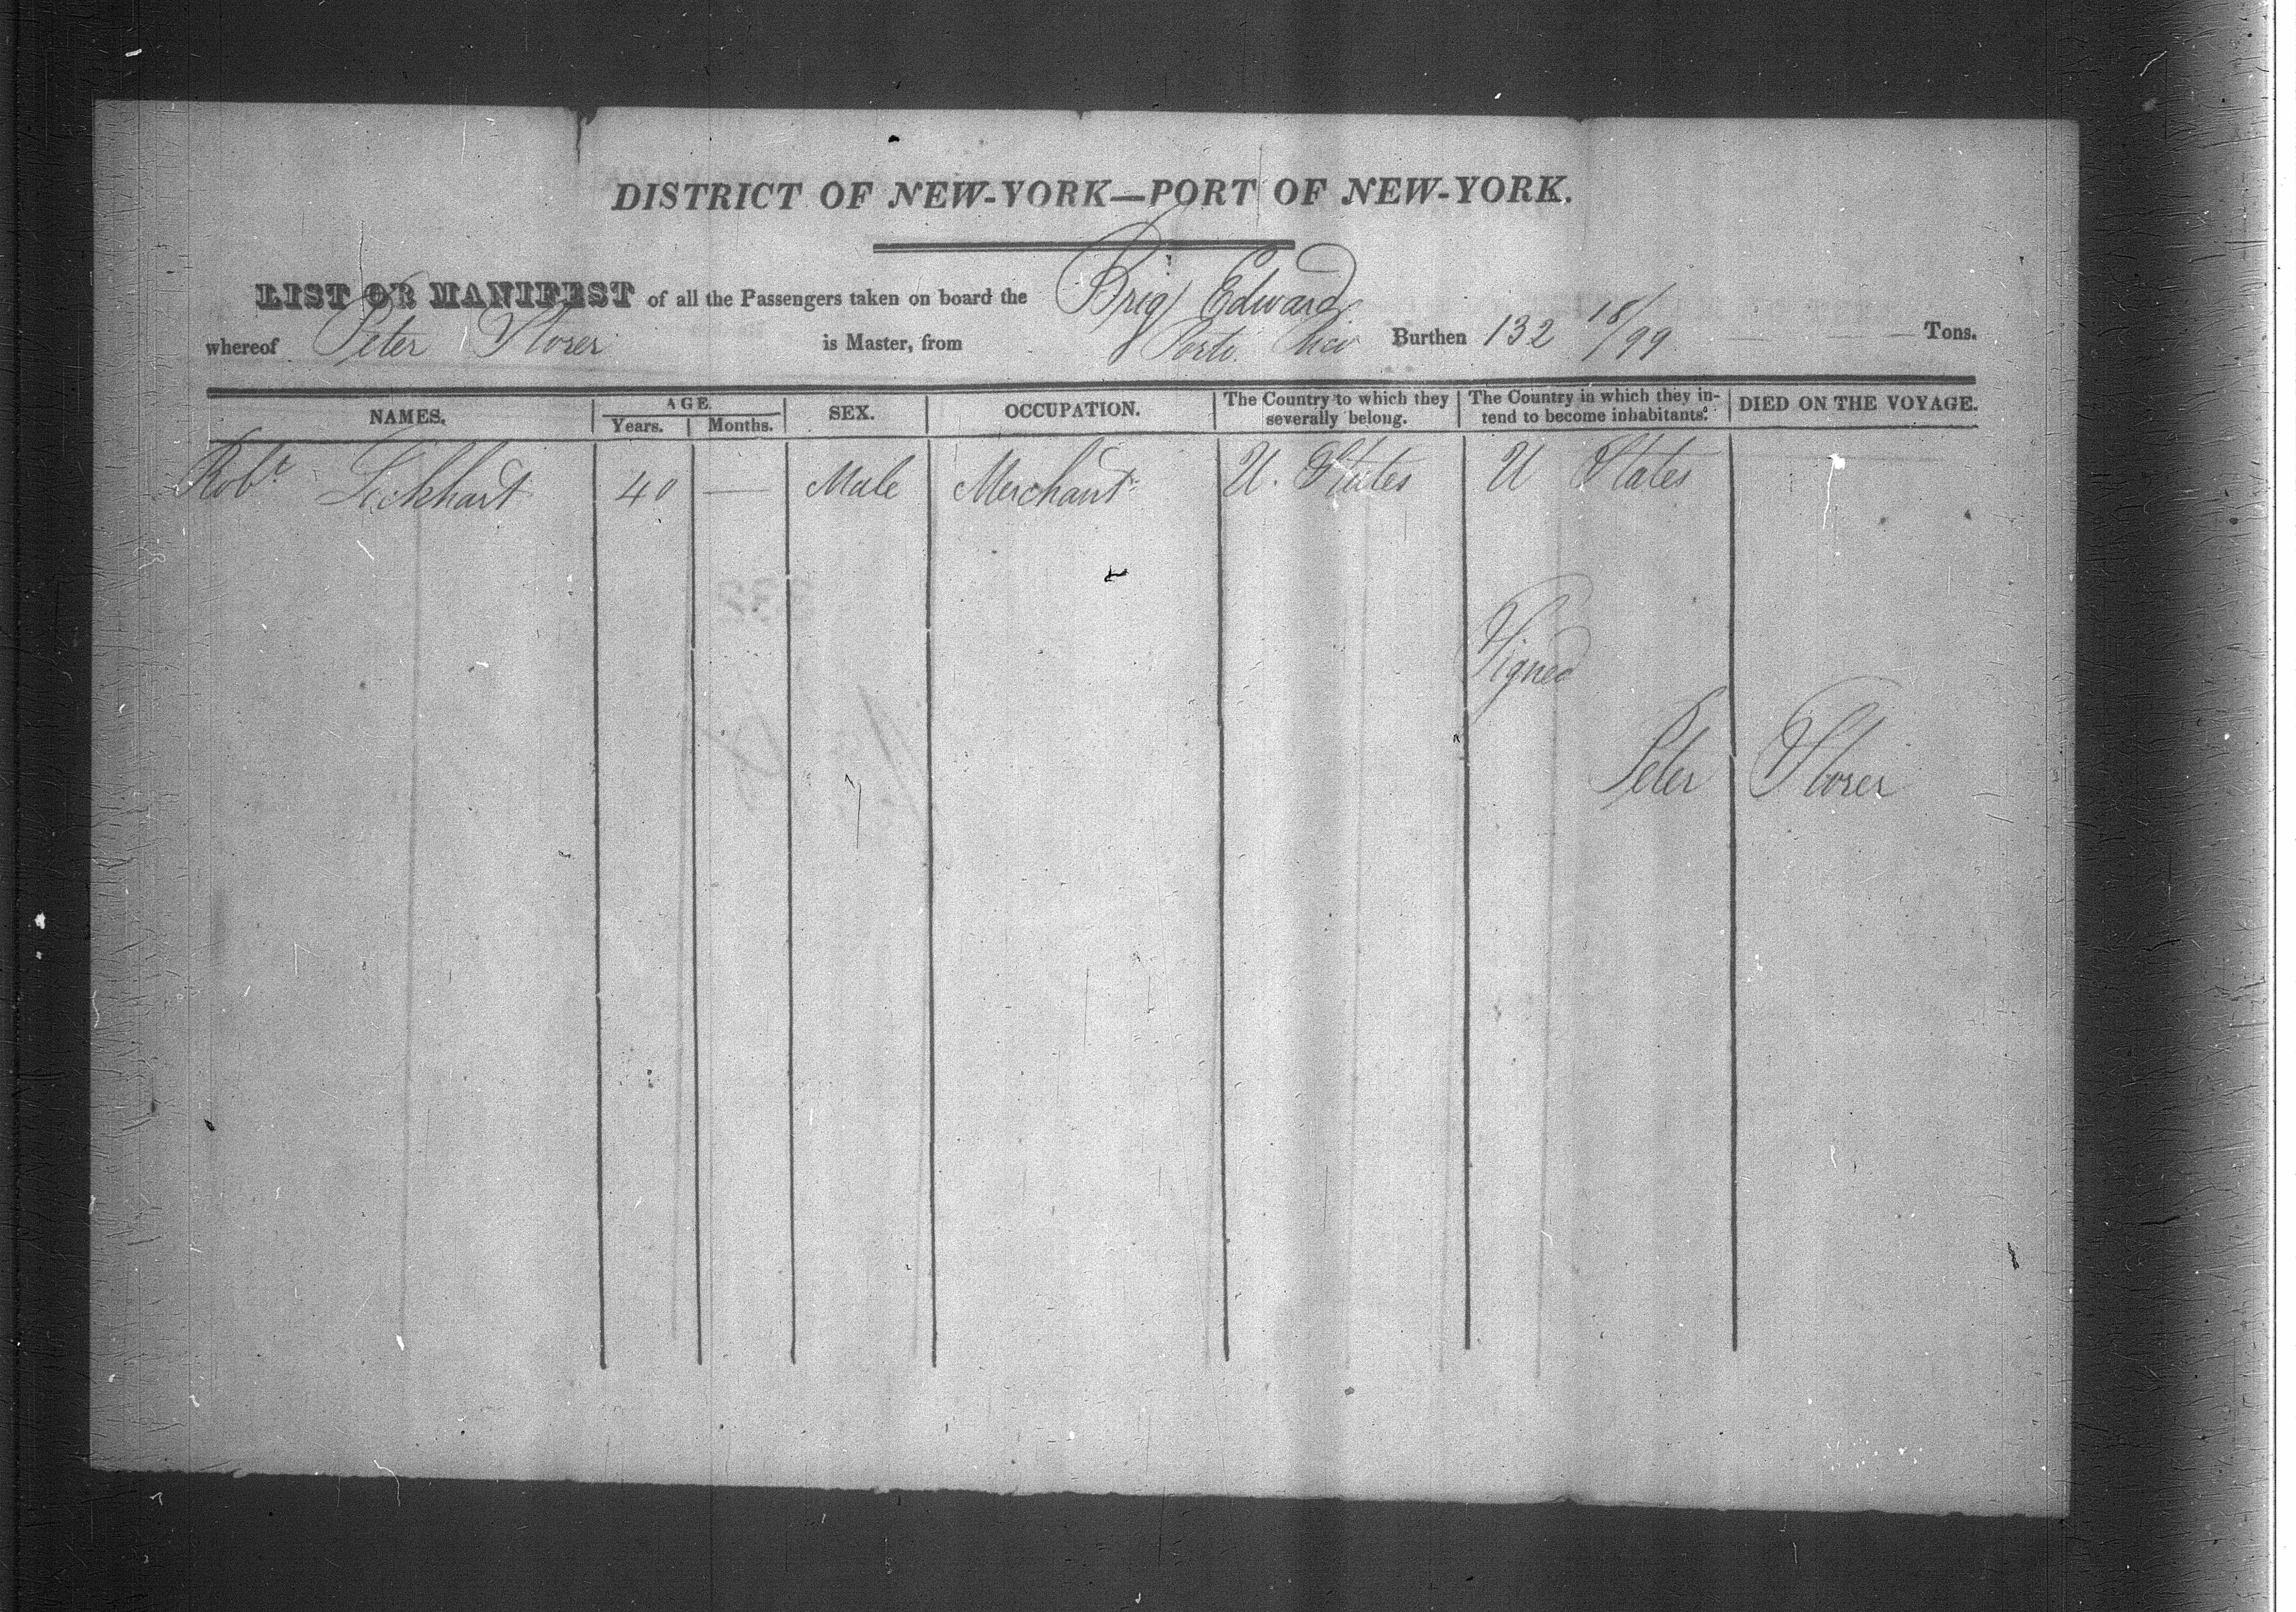 DISTRICT OF NEW-YORK—PORT OF NEW-YORK.
LIST OR MANIFEST of all the Passengers taken on board the Brig Edward
whereof Peter Storer is Master, from Porto Rico Burthen 132 18/99 — — Tons.
NAMES. AGE. Years. Months. SEX. OCCUPATION. The Country to which they severally belong. The Country in which they intend to become inhabitants. DIED ON THE VOYAGE.
Robt Lockhart 40 — Male Merchant U. States U States
Signed
Peter Storer